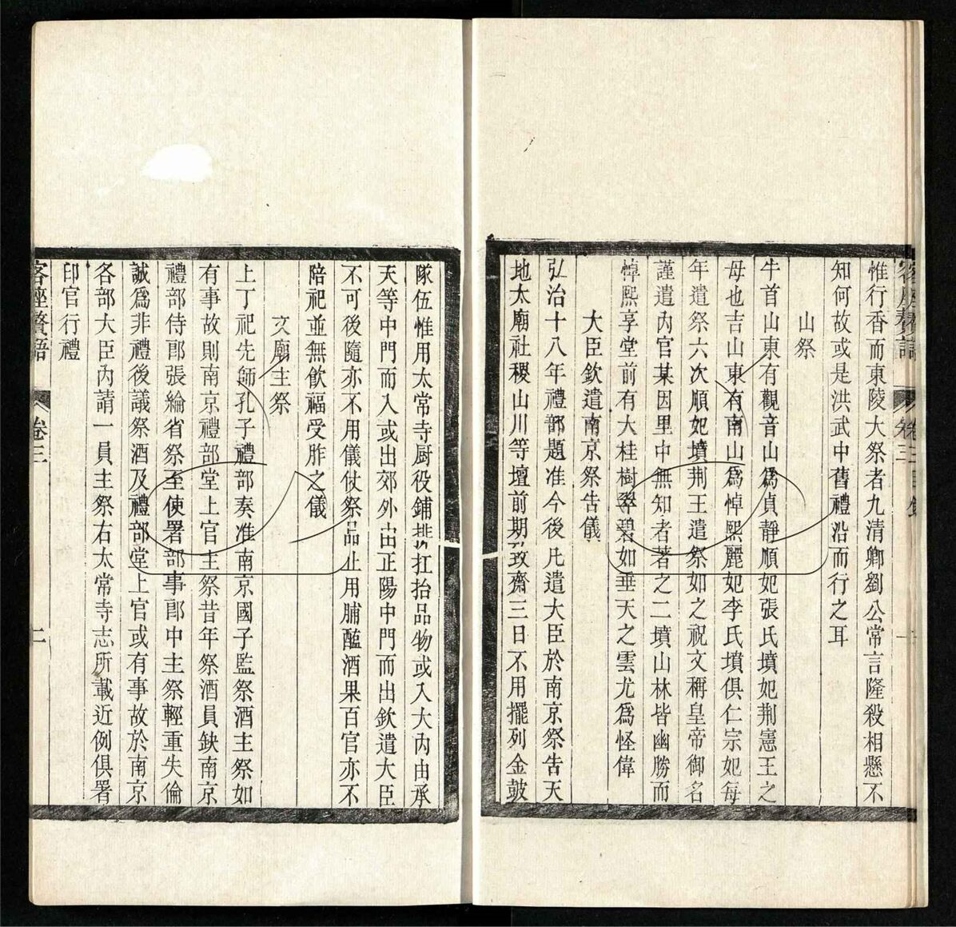 惟行香而東陵大祭者九清卿劉公常言隆殺相懸不
知何故或是洪武中舊禮沿而行之耳
山祭
牛首山東有觀音山爲貞靜順妃張氏墳妃荆憲王之
母也吉山東有南山爲悼熙麗妃李氏墳俱仁宗妃每
年遣祭六次順妃墳荆王遣祭如之祝文稱皇帝御名
謹遣內官某因里中無知者著之二墳山林皆幽勝而
悼熙享堂前有大桂樹翠碧如垂天之雲尤爲怪偉
大臣欽遣南京祭告儀
弘治十八年禮部題准今後凡遣大臣於南京祭告天
地太廟社稷山川等壇前期致齋三日不用擺列金鼓
隊伍惟用太常寺厨役鋪排扛抬品物或入大內由承
天等中門而入或出郊外由正陽中門而出欽遣大臣
不可後隨亦不用儀仗祭品止用脯醢酒果百官亦不
陪祀並無飲福受胙之儀
文廟主祭
上丁祀先師孔子禮部奏准南京國子監祭酒主祭如
有事故則南京禮部堂上官主祭昔年祭酒員缺南京
禮部侍郎張綸省祭至使署部事郎中主祭輕重失倫
誠爲非禮後議祭酒及禮部堂上官或有事故於南京
各部大臣內請一員主祭右太常寺志所載近例俱署
印官行禮
客座贅語
卷三
二